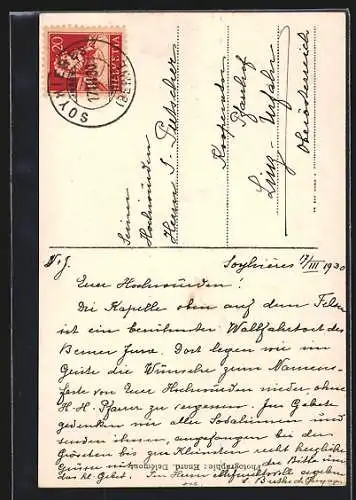 20
HELVETIA
SOYHIÈRES
17.III.30
Seiner
Hochwürden
Herrn J. Lutscher
Kooperator
Pfarrhof
Linz-Urfahr
Oberösterreich
Photographie: Enard, Delémont
Soyhières 17/III 1930
Euer Hochwürden!
Die Kapelle oben auf dem Felsen
ist ein berühmter Wallfahrtsort des
Berner Jura. Dort legen wir im
Geiste die Wünsche zum Namens-
feste von Euer Hochwürden nieder ohne
H. H. Pfarrer zu vergessen. Im Gebete
gedenken wir aller Sodalinnen und
senden ihnen, angefangen bei den
Grössten bis zum Kleinsten recht herzliche
Grüsse mit der Bitte um
das hl. Gebet. Im Herrn ergeben